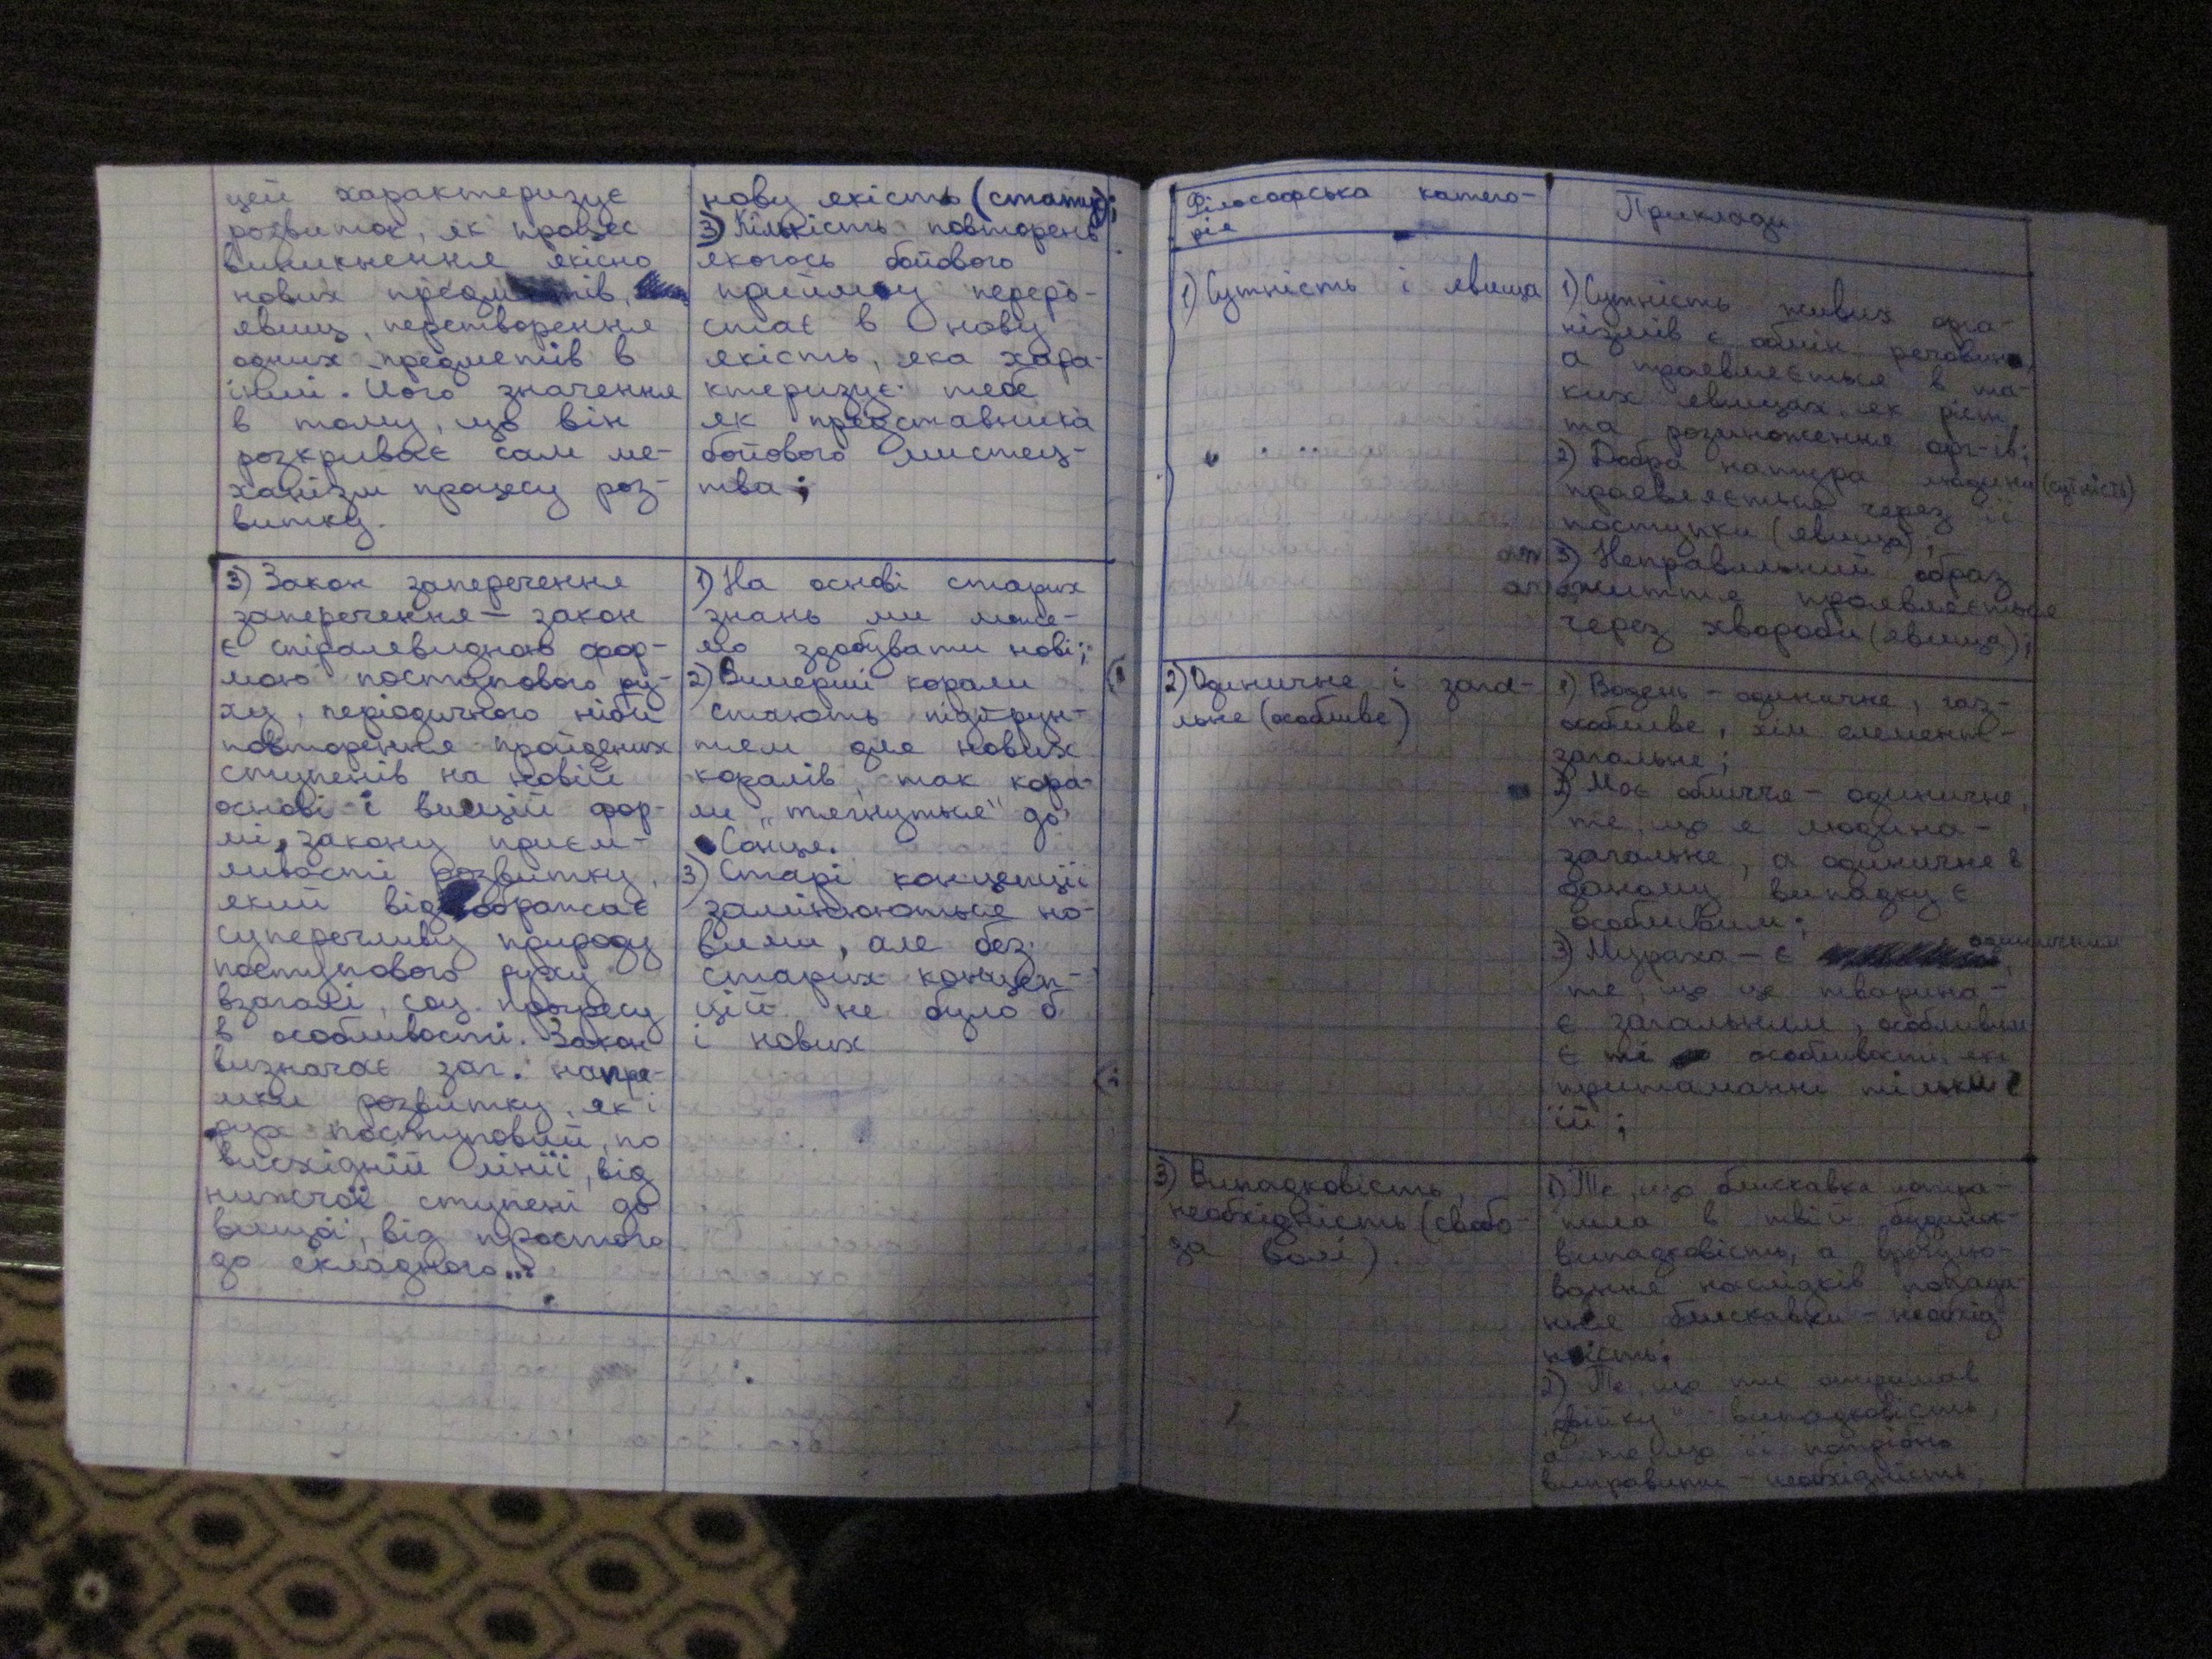 цей характеризує
розвиток, як процес
виникнення якісно
нових предметів,
явищ, перетворення
одних предметів в
інші. Його значення
в тому, що він
розкриває сам ме-
ханізм процесу роз-
витку.
нову якість (статую);
3) Кількість повторень
якогось бойового
прийому переро-
стає в нову
якість, яка хара-
ктеризує тебе
як представника
бойового мистец-
тва;
3) Закон заперечення
заперечення — закон
є спіралевидною фор-
мою поступового ру-
ху, періодичного ніби
повторення пройдених
ступенів на новій
основі і вищій фор-
мі, закону приєм-
ливості розвитку,
який відображає
суперечливу природу
поступового руху
взагалі, соц. прогресу
в особливості. Закон
визначає заг. напря-
мки розвитку, як і
рух поступовий, по
висхідній лінії, від
нижчої ступені до
вищої, від простого
до складного...
1) На основі старих
знань ми може-
мо здобувати нові;
2) Вимерші корали
стають підгрун-
тям для нових
коралів, так кора-
ли "тягнуться" до
Сонця.
3) Старі концепції
замінюються но-
вими, але без
старих концеп-
цій не було б
і нових
Філософська катего-
рія
Приклади
1) Сутність і явища
1) Сутність живих орга-
нізмів є обмін речовин,
а проявляється в та-
ких явищах, як ріст
та розмноження орг-ів;
2) Добра натура людини (сутність)
проявляється через її
поступки (явища);
3) Неправильний образ
життя проявляється
через хвороби (явища);
2) Одиничне і зага-
льне (особливе)
1) Водень - одиничне, газ-
особливе, хім елемент-
загальне;
2) Моє обличчя - одиничне,
те, що я людина -
загальне, а одиничне в
даному випадку є
особливим;
3) Мураха — є одиничним,
те, що це тварина -
є загальним, особливим
є ті особливості, які
притаманні тільки
їй;
3) Випадковість,
необхідність (свобо-
да волі).
1) Те, що блискавка потра-
пила в твій будинок-
випадковість, а врегулю-
вання наслідків попада-
ння блискавки - необхід
ність;
2) Те, що ти отримав
"двійку" - випадковість,
а те, що її потрібно
виправити - необхідність,